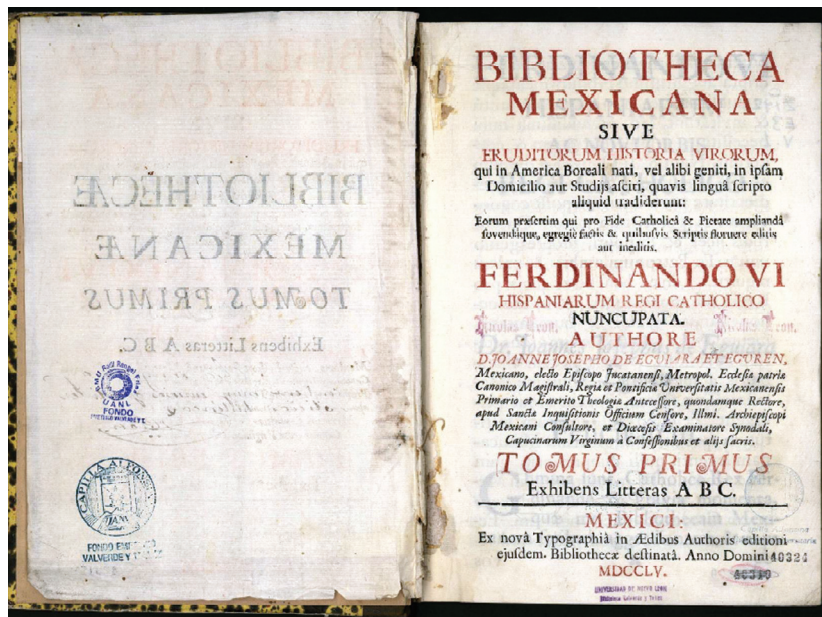 BIBLIOTHECÆ
MEXICANÆ
TOMUS PRIMUS
Exhibens Litteras A B C.
UANL
FONDO
CAPILLA ALFONSINA
UANL
FONDO
VALVERDE Y
BIBLIOTHECA
MEXICANA
SIVE
ERUDITORUM HISTORIA VIRORUM,
qui in America Boreali nati, vel alibi geniti, in ipsam
Domicilio aut Studijs asciti, quavis linguâ scripto
aliquid tradiderunt:
Eorum præsertim qui pro Fide Catholicâ & Pietate ampliandâ
fovendâque, egregiè factis & quibusvis Scriptis floruere editis
aut ineditis.
FERDINANDO VI
HISPANIARUM REGI CATHOLICO
NUNCUPATA.
Nicolas Leon. Nicolas Leon.
AUTHORE
D. JOANNE JOSEPHO DE EGUIARA ET EGUREN,
Mexicano, electo Episcopo Jucatanensi, Metropol. Ecclesiæ patriæ
Canonico Magistrali, Regiæ et Pontificiæ Universitatis Mexicanensis
Primario et Emerito Theologiæ Antecessore, quondamque Rectore,
apud Sanctæ Inquisitionis Officium Censore, Illmi. Archiepiscopi
Mexicani Consultore, et Diœcesis Examinatore Synodali,
Capucinarum Virginum à Confessionibus et alijs sacris.
TOMUS PRIMUS
Exhibens Litteras A B C.
MEXICI:
Ex novâ Typographiâ in Ædibus Authoris editioni
ejusdem. Bibliothecæ destinatâ. Anno Domini
40324
MDCCLV.
UNIVERSIDAD DE NUEVO LEON